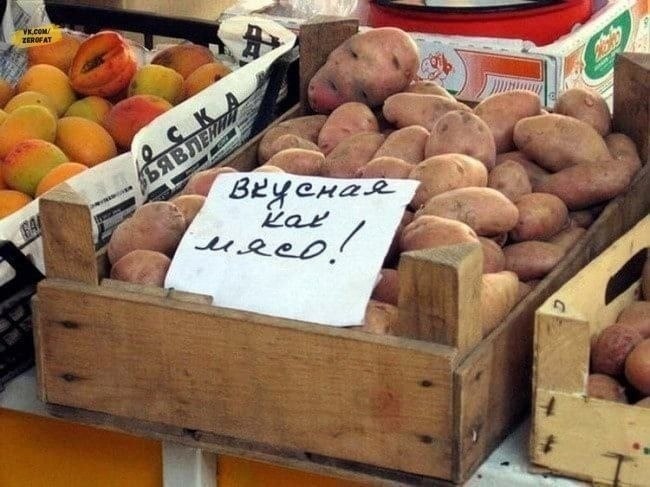 VK.COM/
ZEROFAT
ОСКА
БЪЯВЛЕНИЙ
Вкусная
как
мясо!